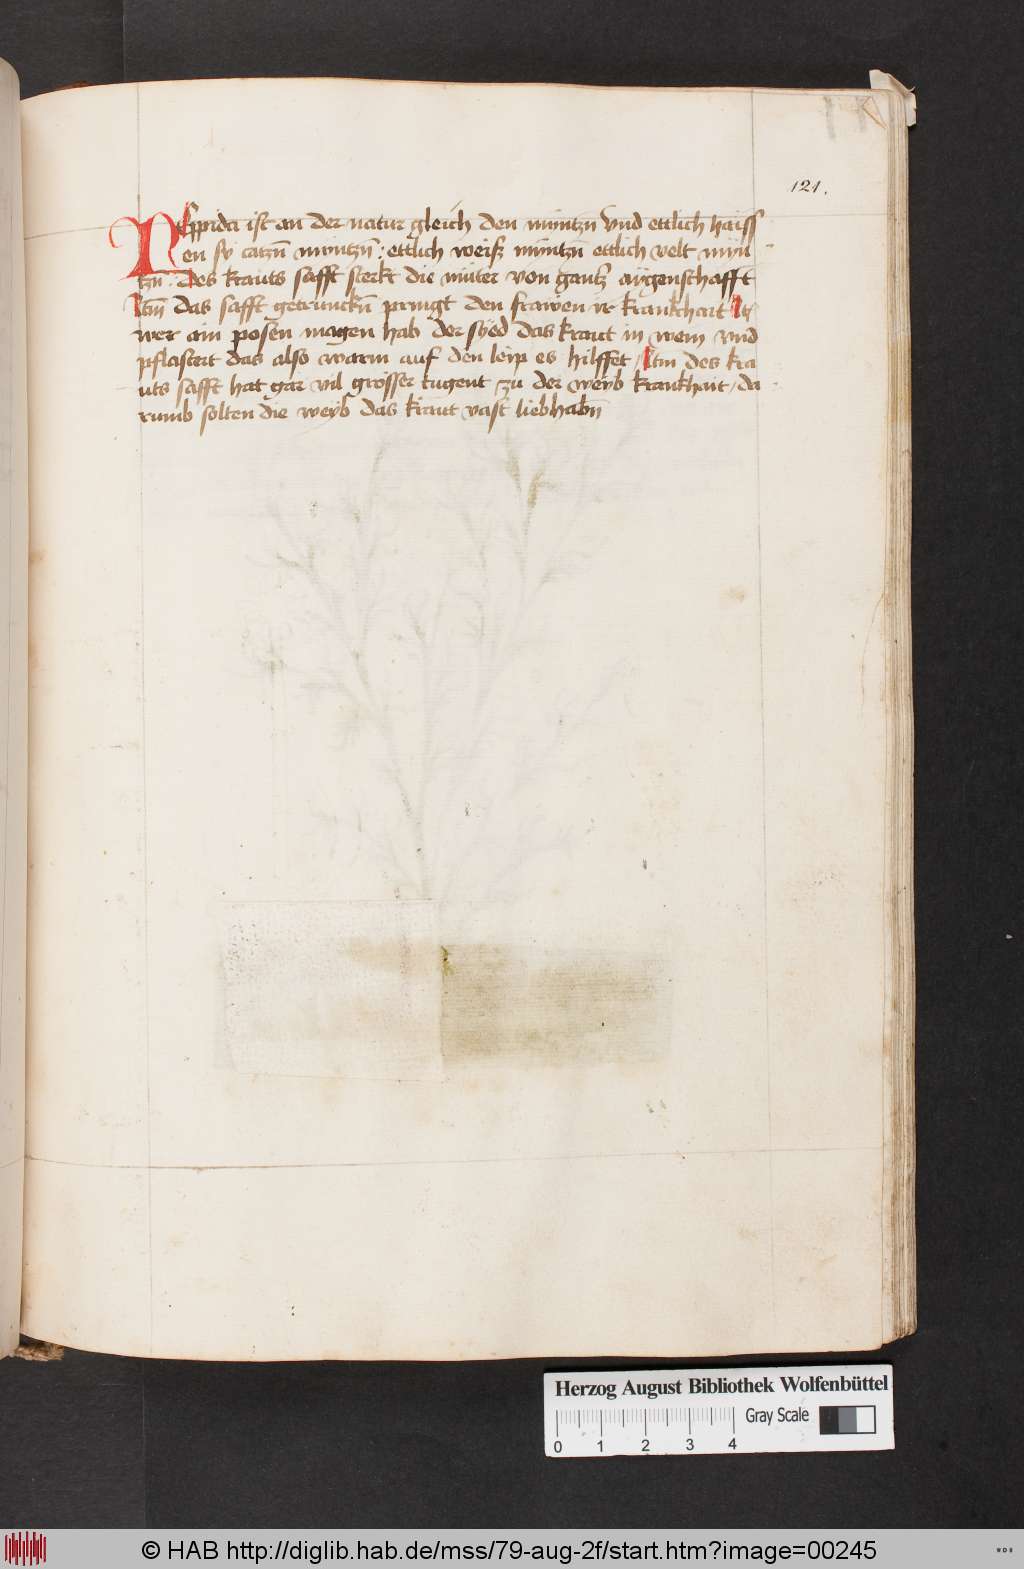 121.
Neppida ist an der natur gleich den müntzn̄ vnd ettlich haiss
en sy catzn̄ müntzn̄: ettlich weiß müntzn̄ ettlich velt mün
tzn̄. des krauts safft sterkt die muter von gantz̃ aygenschafft
Itm̄ das safft getrunckn̄ pringt den frawen ir krankhait It̄
wer ain posen magen hab der syed das kraut in wein vnd
pflastert das also warm auf den leip es hilffet / Itm des kra
uts safft hat gar vil grösser tugent zu der weyb krankhait / da
rumb solten die weyb das kraut vast liebhabn̄
Herzog August Bibliothek Wolfenbüttel
Gray Scale
0 1 2 3 4
© HAB http://diglib.hab.de/mss/79-aug-2f/start.htm?image=00245